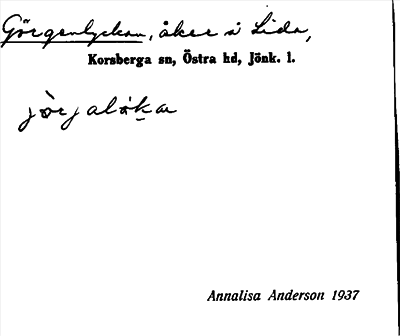 Görgenlyckan, åker i Lida,
Korsberga sn, Östra hd, Jönk. l.
jòrjalókar
Annalisa Anderson 1937